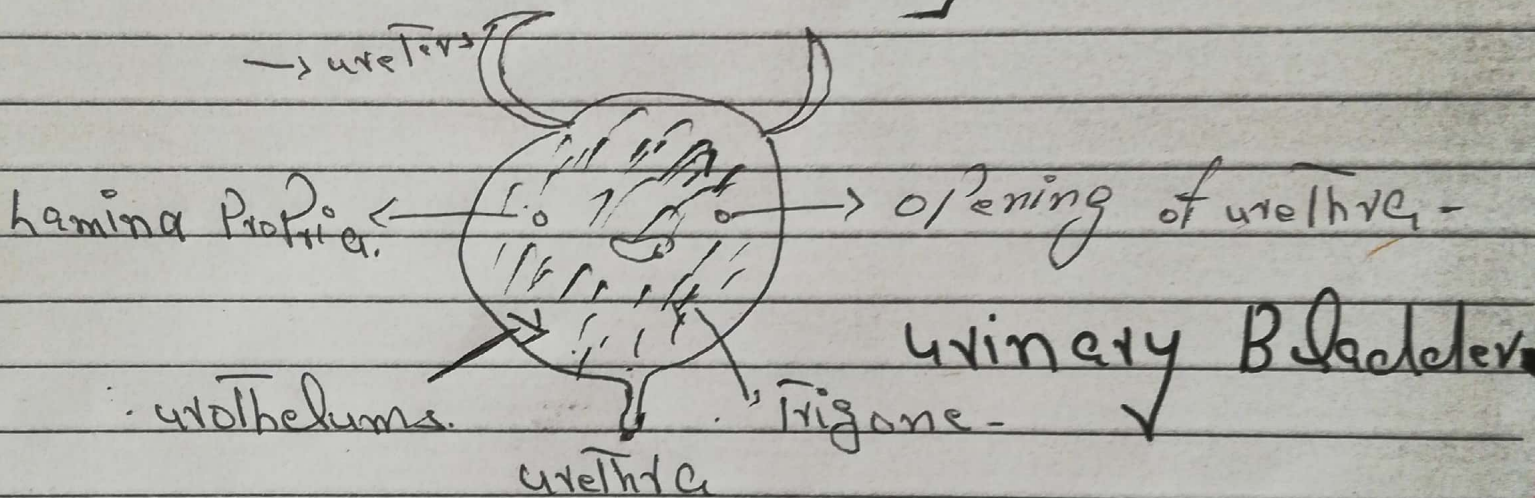 → ureters
Lamina Propria.
opening of urethra -
urinary Bladder
urothelums.
Trigone -
urethra